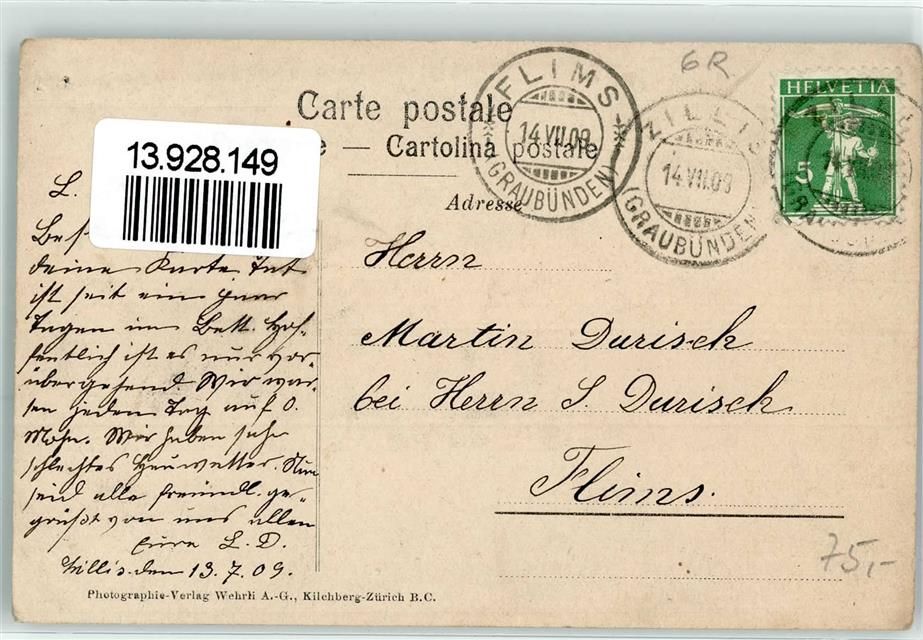 6R
HELVETIA
5
FLIMS
14.VII.09
(GRAUBÜNDEN)
ZILLIS
14.VII.09
(GRAUBÜNDEN)
Carte postale
— Cartolina postale
13.928.149
Adresse
L.
deine Karte
ist seit ein paar
Tagen im Bett. Hof-
fentlich ist es nur vor
übergehend. Wir war-
ten jeden Tag auf
Wir haben sehr
schlechtes Heuwetter. Nun
seid alle freundl. ge-
grüßt von uns allen
Eure L. D.
Zillis. den 13. 7. 09.
Herrn
Martin Durisch
bei Herrn S. Durisch
Flims.
75,-
Photographie-Verlag Wehrli A.-G., Kilchberg-Zürich B.C.